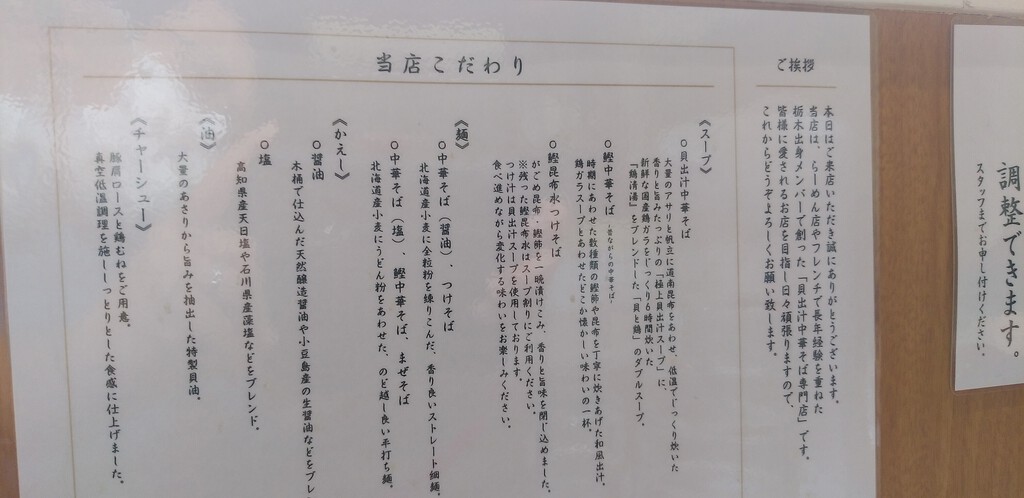 調整できます。
スタッフまでお申し付けください。
ご挨拶
本日はご来店いただき誠にありがとうございます。
当店は、らーめん店やフレンチで長年経験を重ねた
栃木出身メンバーで創った「貝出汁中華そば専門店」です。
皆様に愛されるお店を目指し日々頑張りますので、
これからどうぞよろしくお願い致します。
当店こだわり
《スープ》
○貝出汁中華そば
大量のアサリと帆立に道南昆布をあわせ、低温でじっくり炊いた
香りと旨みたっぷりの「極上貝出汁スープ」に、
新鮮な国産鶏ガラをじっくり6時間炊いた
「鶏清湯」をブレンドした「貝と鶏」のダブルスープ。
○鰹中華そば -昔ながらの中華そば-
時期にあわせた数種類の鰹節や昆布を丁寧に炊きあげた和風出汁。
鶏ガラスープとあわせたどこか懐かしい味わいの一杯。
○鰹昆布水つけそば
がごめ昆布・鰹節を一晩漬けこみ、香りと旨味を閉じ込めました。
※残った鰹昆布水はスープ割りにご利用ください。
つけ汁は貝出汁スープを使用しております。
食べ進めながら変化する味わいをお楽しみください。
《麺》
○中華そば（醤油）、つけそば
北海道産小麦に全粒粉を練りこんだ、香り良いストレート細麺。
○中華そば（塩）、鰹中華そば、まぜそば
北海道産小麦にうどん粉をあわせた、のど越し良い平打ち麺。
《かえし》
○醤油
木桶で仕込んだ天然醸造醤油や小豆島産の生醤油などをブレ
○塩
高知県産天日塩や石川県産藻塩などをブレンド。
《油》
大量のあさりから旨みを抽出した特製貝油。
《チャーシュー》
豚肩ロースと鶏むねをご用意。
真空低温調理を施ししっとりとした食感に仕上げました。